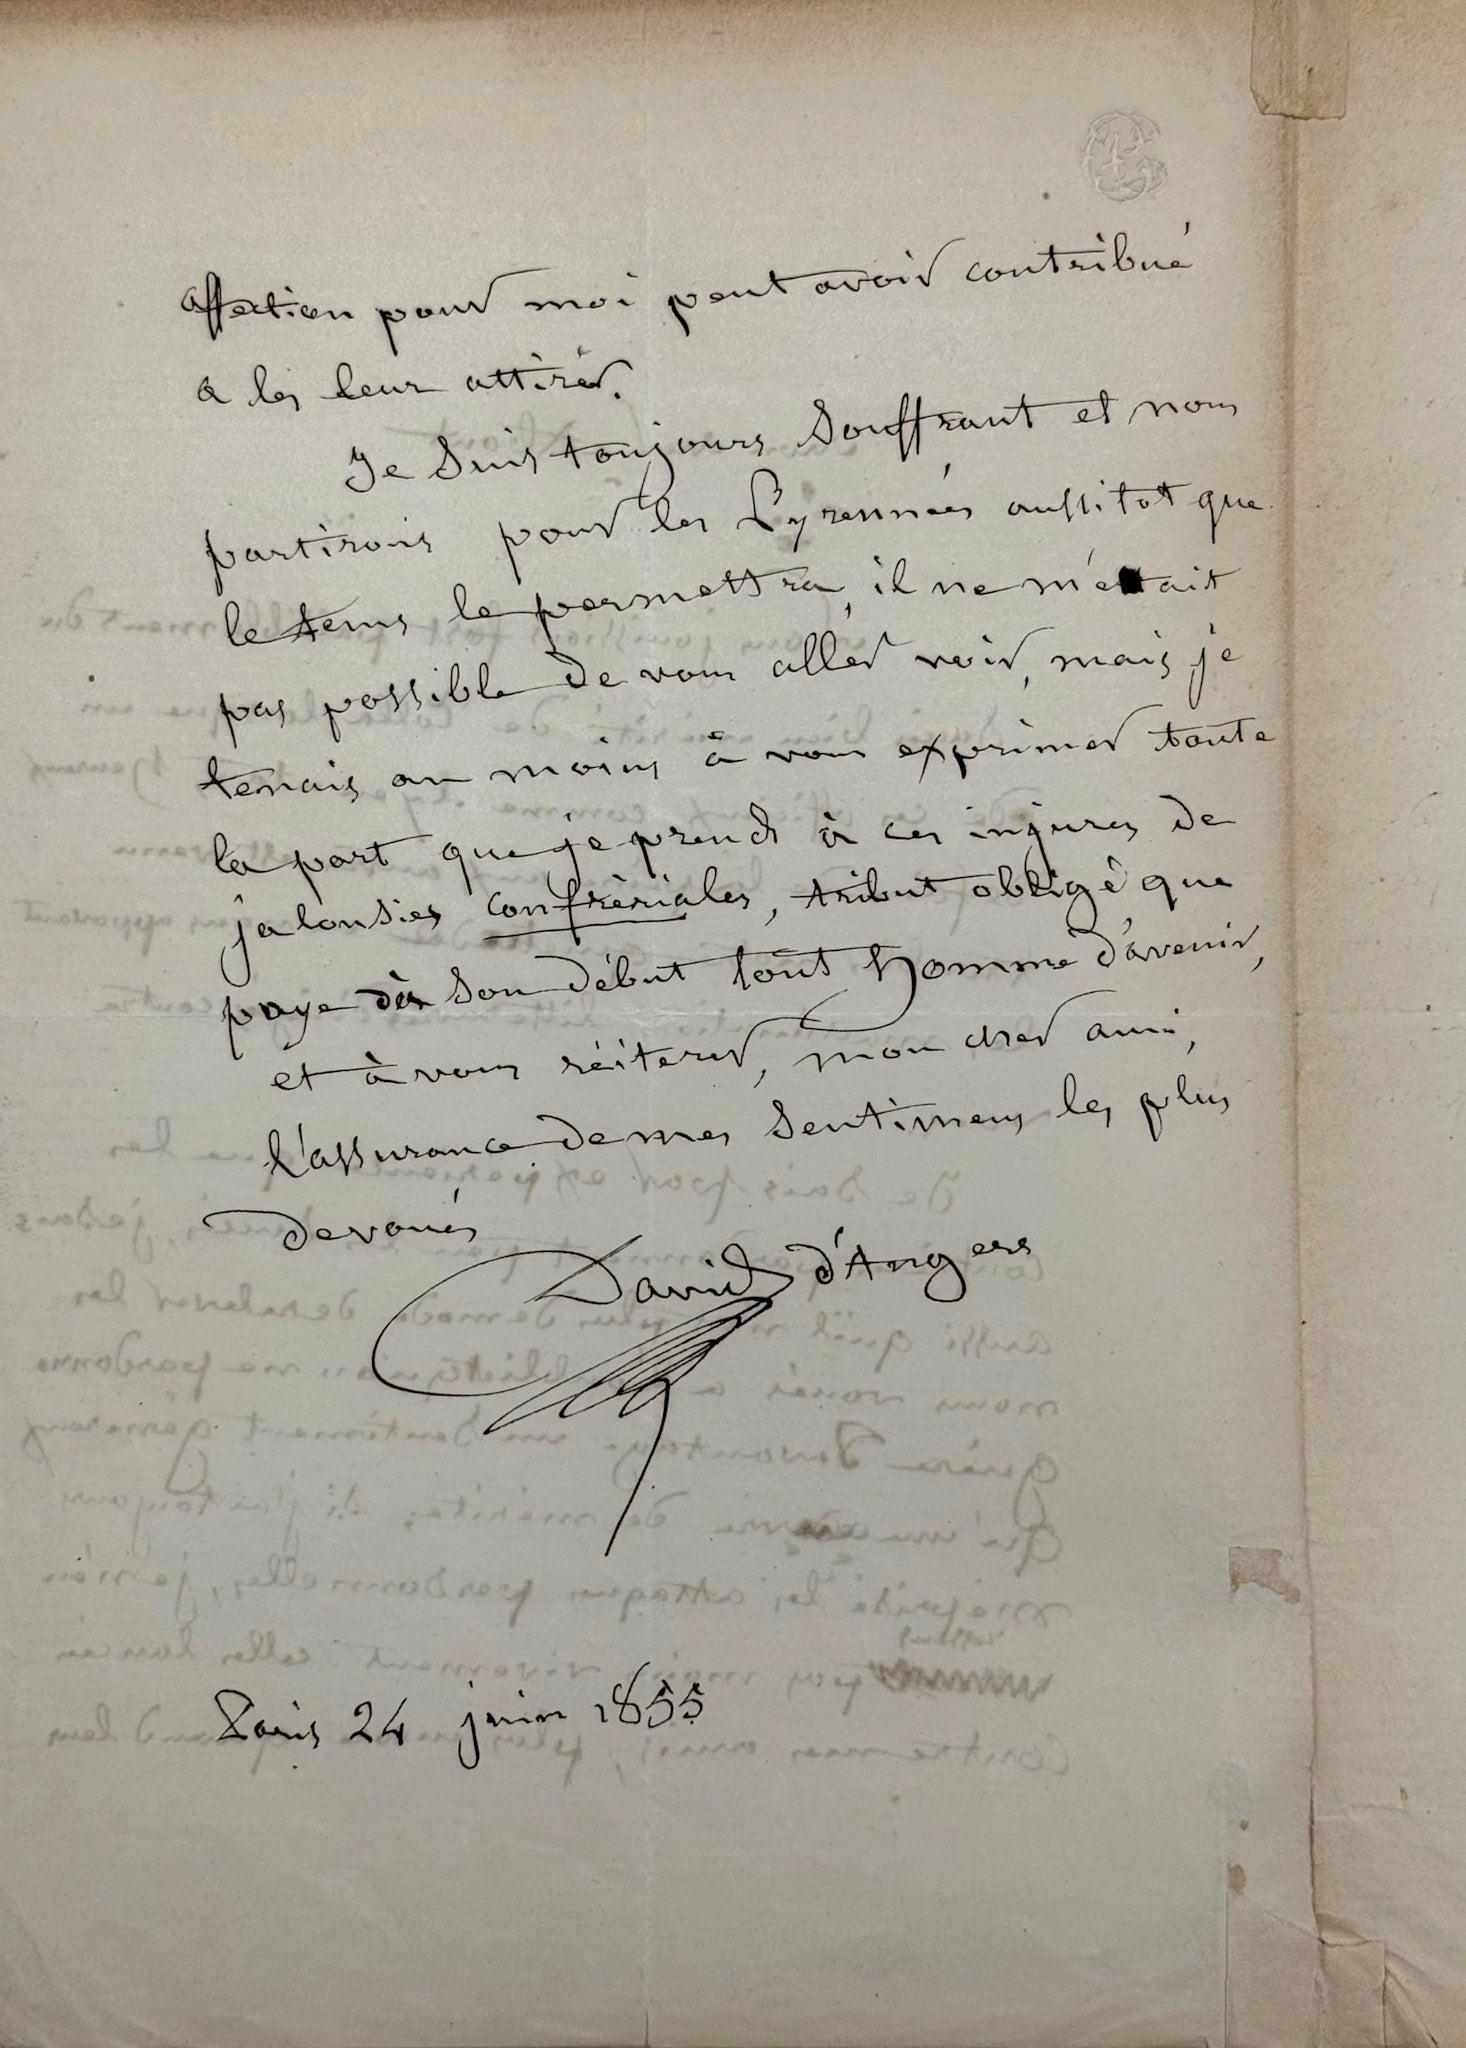 affection pour moi peut avoir contribué
a les leur attirer.
Je suis toujours souffrant et nous
partirons pour les Pyrennées aussitot que
le tems le permettra, il ne m'était
pas possible de vous aller voir, mais je
tenais au moins à vous exprimer toute
la part que je prends à ces injures de
jalousies confrèriales, tribut obligé que
paye dès son début tout homme d'avenir,
et à vous réiterer, mon cher ami,
l'assurance de mes sentimens les plus
devoués
David d'Angers
Paris 24 juin 1855